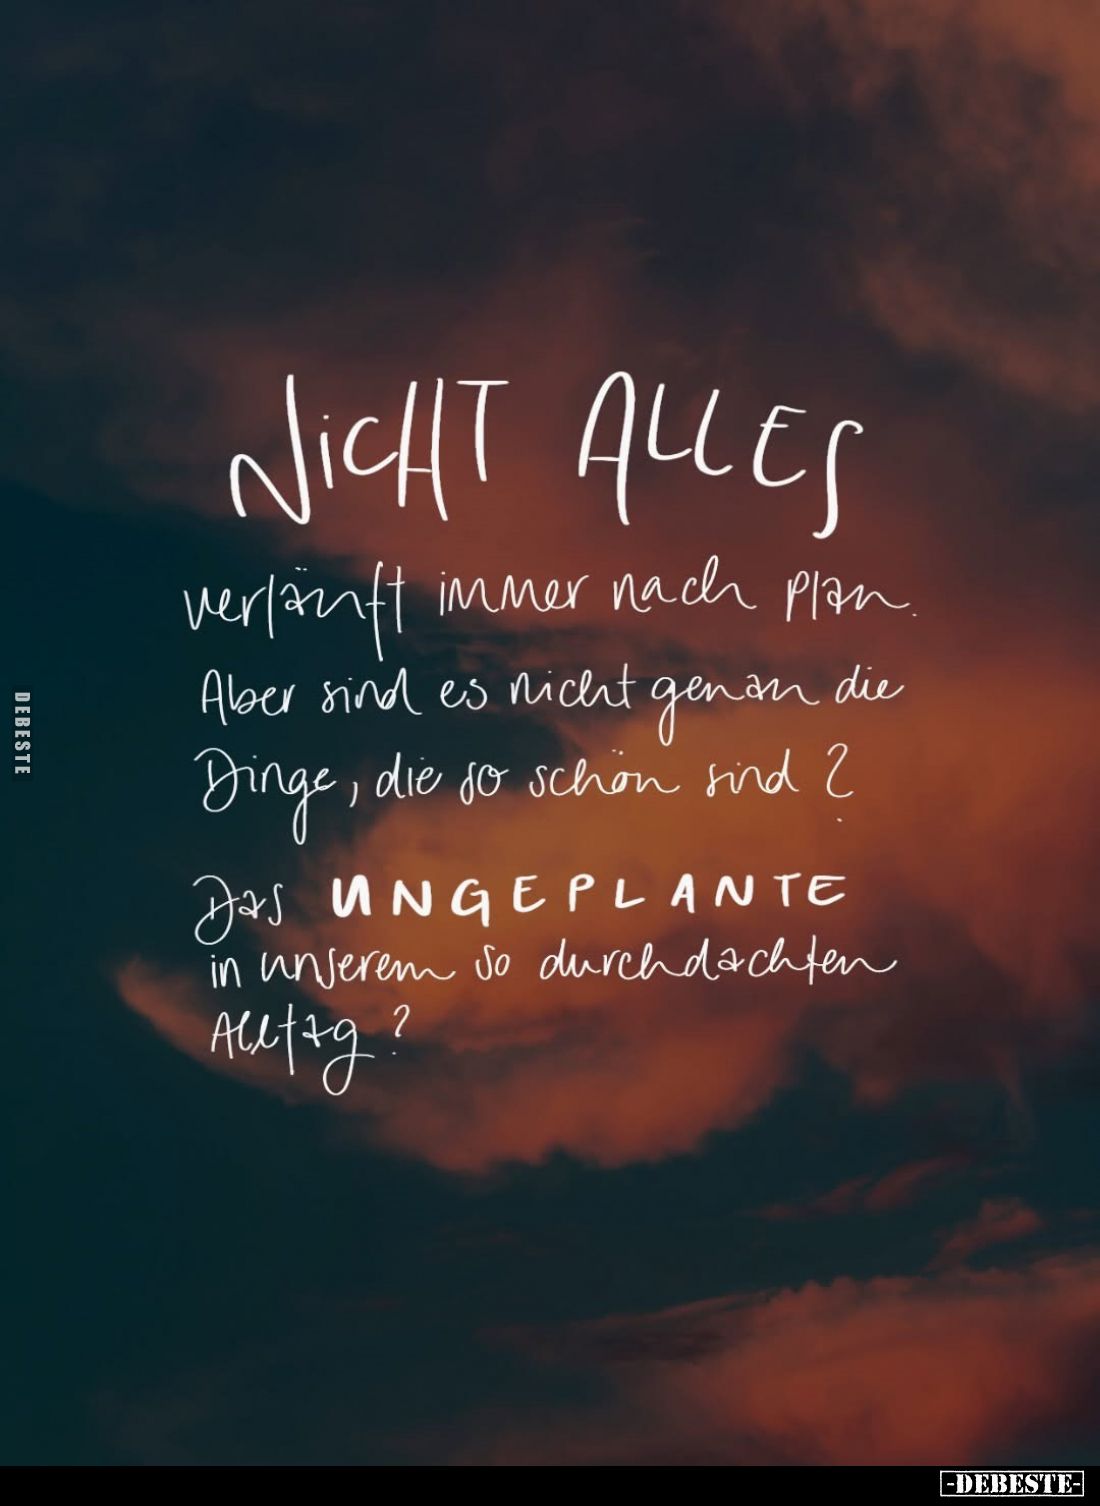 NICHT ALLES
verläuft immer nach Plan.
Aber sind es nicht genau die
Dinge, die so schön sind?
Das UNGEPLANTE
in unserem so durchdachten
Alltag?
DEBESTE
-DEBESTE-